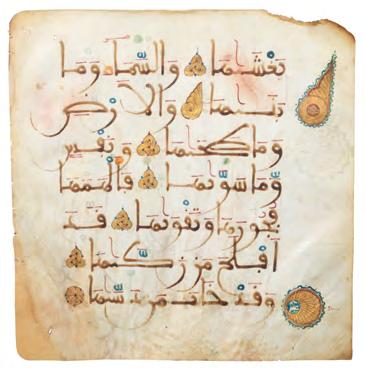 يَغْشَىٰهَا وَالسَّمَآءِ وَمَا
بَنَىٰهَا وَالْأَرْضِ
وَمَا طَحَىٰهَا وَنَفْسٍ
وَمَا سَوَّىٰهَا فَأَلْهَمَهَا
فُجُورَهَا وَتَقْوَىٰهَا قَدْ
أَفْلَحَ مَن زَكَّىٰهَا
وَقَدْ خَابَ مَن دَسَّىٰهَا